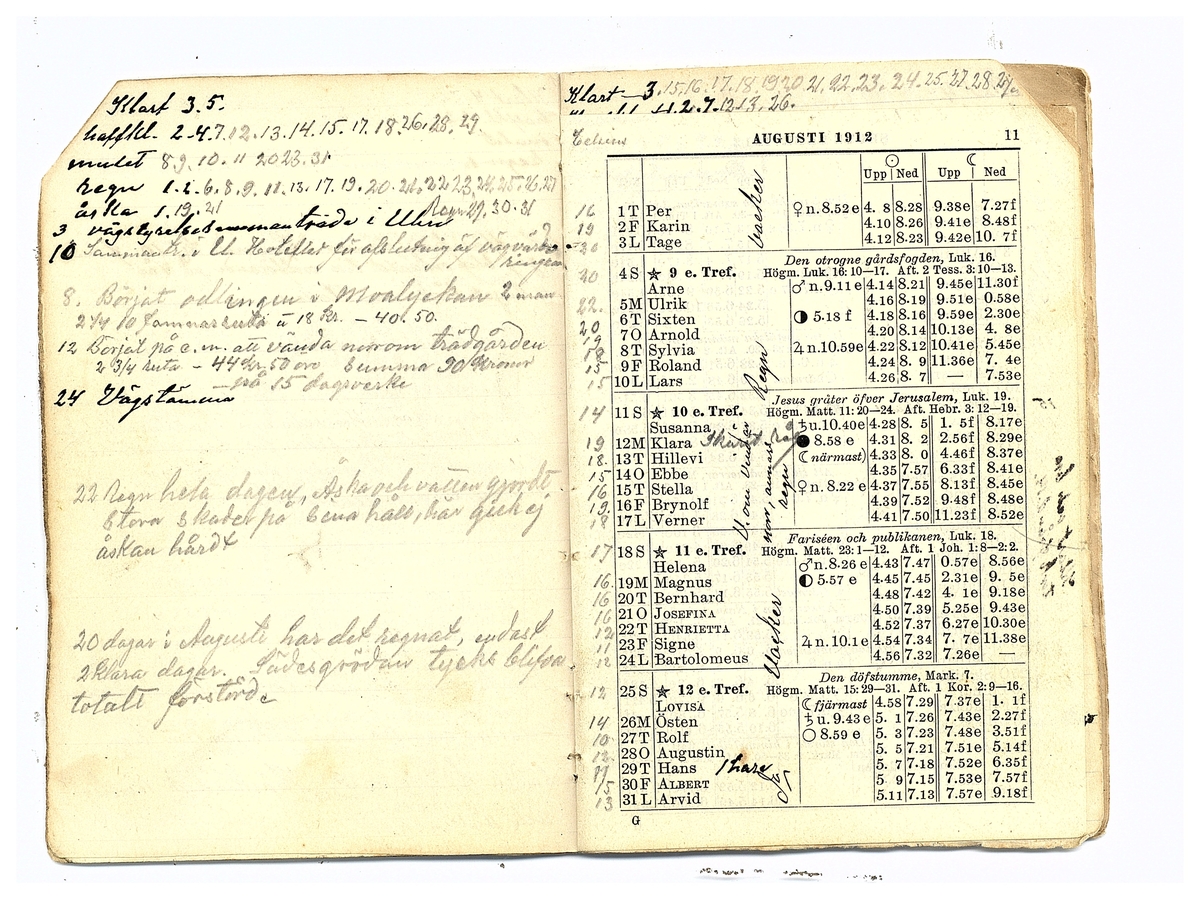 Klart 3.5.
halfkl. 2.4.7.12.13.14.15.17.18.26.28.29.
mulet 8.9.10.11 20 23.31
regn 1.2.6.8.9.11.13.17.19.20.21.22 23.24.25.26.27
Regn 29.30.31
åska 1.19.21
3 vägstyrelsesammanträde i Ulric
10 Sammantr. i Ul. Hotellet för afslutning af vägvärde
ringen
8. Börjat odlingen i Moalyckan 2 man
2 1/4 10 famnarsruta à 18 Kr. – 40.50.
12 Börjat på e.m. att vända norrom trädgården
2 3/4 ruta – 44 Kr. 50 öre Summa 90 Kronor
– på 15 dagsverke
24 Vägstämma
22 Regn hela dagen, Åska och vatten gjordt
stora skador på sina håll, här gick ej
åskan hårdt
20 dagar i Augusti har det regnat, endast
2 klara dagar. Sädesgrödan tycks blifva
totalt förstörd
Klart – 3.15.16.17.18.19.20.21.22.23.24.25.27.28.29
4.2.7.12.13.26.
Celsius
AUGUSTI 1912 11
☉ ☾
Upp Ned Upp Ned
16 1 T Per ♀ n. 8.52 e 4. 8 8.28 9.38e 7.27f
19 2 F Karin 4.10 8.26 9.41e 8.48f
20 3 L Tage 4.12 8.23 9.42e 10. 7f
vacker
Den otrogne gårdsfogden, Luk. 16.
20 4 S ★ 9 e. Tref. Högm. Luk. 16: 10—17. Aft. 2 Tess. 3: 10—13.
Arne ♂ n. 9.11 e 4.14 8.21 9.45e 11.30f
22. 5 M Ulrik 4.16 8.19 9.51e 0.58e
20 6 T Sixten ◑ 5.18 f 4.18 8.16 9.59e 2.30e
19 7 O Arnold 4.20 8.14 10.13e 4. 8e
18 8 T Sylvia ♃ n. 10.59e 4.22 8.12 10.41e 5.45e
15 9 F Roland 4.24 8. 9 11.36e 7. 4e
15 10 L Lars 4.26 8. 7 — 7.53e
Regn
Jesus gråter öfver Jerusalem, Luk. 19.
14 11 S ★ 10 e. Tref. Högm. Matt. 11: 20—24. Aft. Hebr. 3: 12—19.
Susanna ♄ u. 10.40e 4.28 8. 5 1. 5f 8.17e
19 12 M Klara Skurat råg ● 8.58 e 4.31 8. 2 2.56f 8.29e
18. 13 T Hillevi ☾ närmast 4.33 8. 0 4.46f 8.37e
15 14 O Ebbe 4.35 7.57 6.33f 8.41e
16 15 T Stella ♀ n. 8.22 e 4.37 7.55 8.13f 8.45e
19. 16 F Brynolf 4.39 7.52 9.48f 8.48e
18 17 L Verner 4.41 7.50 11.23f 8.52e
regn
Fariséen och publikanen, Luk. 18.
17 18 S ★ 11 e. Tref. Högm. Matt. 23: 1—12. Aft. 1 Joh. 1: 8—2: 2.
Helena ♂ n. 8.26 e 4.43 7.47 0.57e 8.56e
16. 19 M Magnus ◐ 5.57 e 4.45 7.45 2.31e 9. 5e
16 20 T Bernhard 4.48 7.42 4. 1e 9.18e
16 21 O JOSEFINA 4.50 7.39 5.25e 9.43e
12 22 T HENRIETTA 4.52 7.37 6.27e 10.30e
11 23 F Signe ♃ n. 10.1 e 4.54 7.34 7. 7e 11.38e
12 24 L Bartolomeus 4.56 7.32 7.26e —
Vacker
Den döfstumme, Mark. 7.
12 25 S ★ 12 e. Tref. Högm. Matt. 15: 29—31. Aft. 1 Kor. 2: 9—16.
LOVISA ☾ fjärmast 4.58 7.29 7.37e 1. 1f
14 26 M Östen ♄ u. 9.43 e 5. 1 7.26 7.43e 2.27f
10. 27 T Rolf ○ 8.59 e 5. 3 7.23 7.48e 3.51f
12. 28 O Augustin 5. 5 7.21 7.51e 5.14f
11 29 T Hans 1 hare 5. 7 7.18 7.52e 6.35f
15 30 F ALBERT 5. 9 7.15 7.53e 7.57f
13 31 L Arvid 5.11 7.13 7.57e 9.18f
G